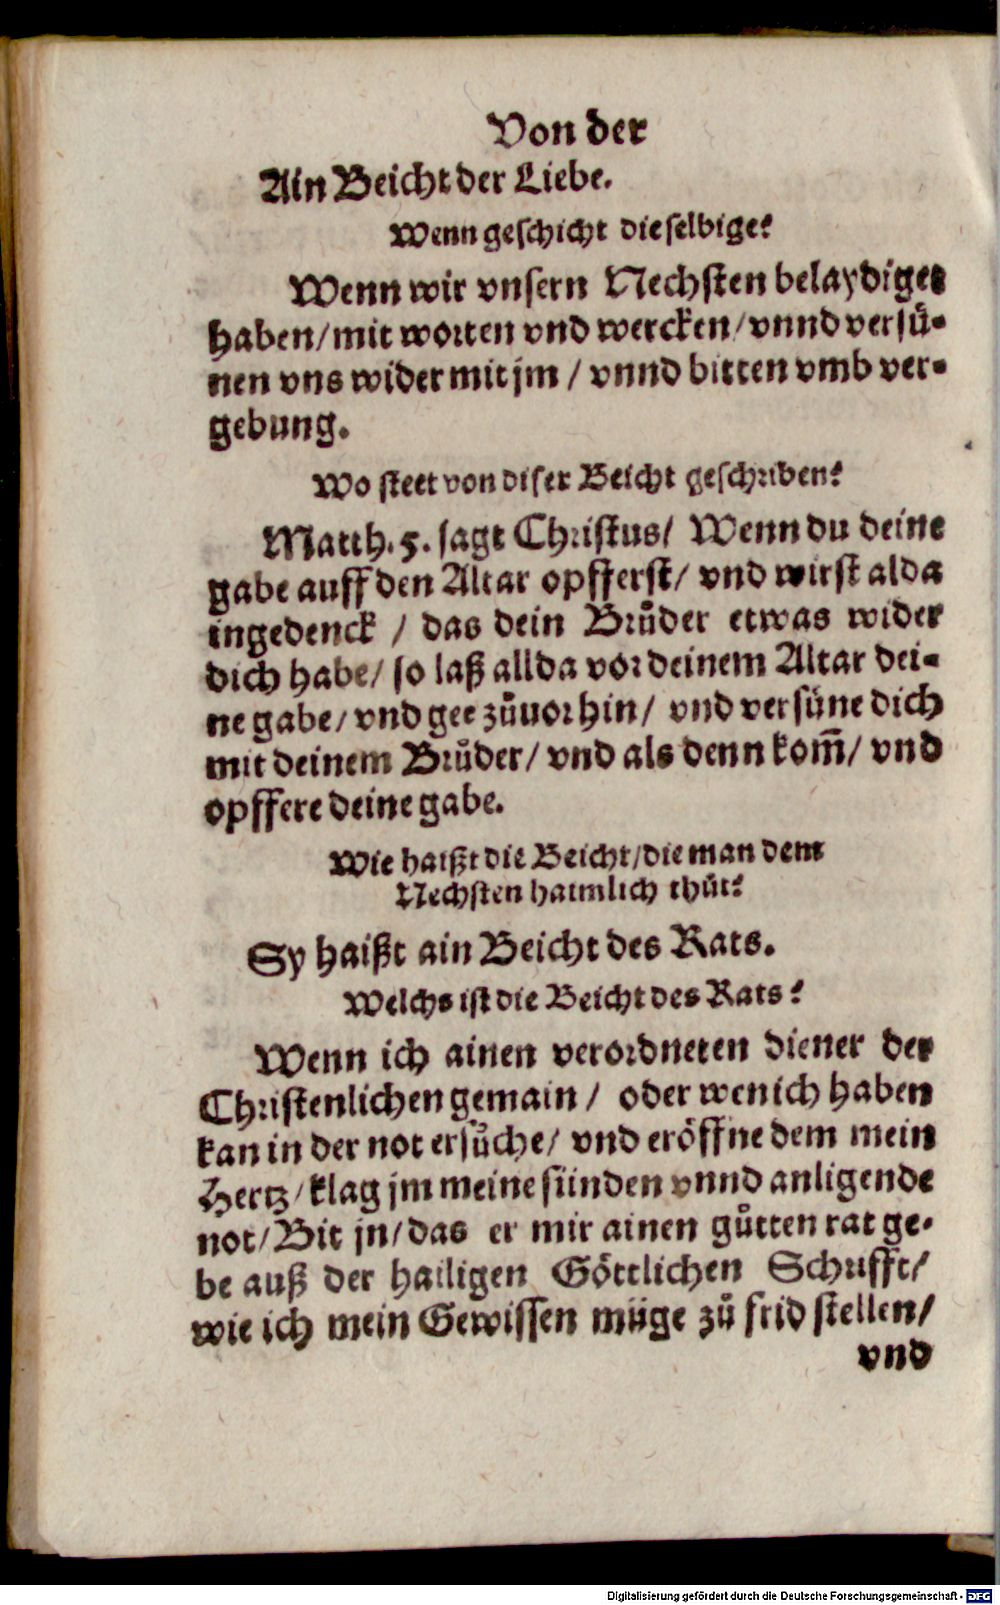 Von der
Ain Beicht der Liebe.
Wenn geschicht dieselbige?
Wenn wir vnsern Nechsten belaydiget
haben/ mit worten vnd wercken/ vnnd versü-
nen vns wider mit jm / vnnd bitten vmb ver-
gebung.
Wo steet von diser Beicht geschriben?
Matth. 5. sagt Christus/ Wenn du deine
gabe auff den Altar opfferst/ vnd wirst alda
ingedenck / das dein Brůder etwas wider
dich habe/ so laß allda vor deinem Altar dei-
ne gabe/ vnd gee zůuor hin/ vnd versüne dich
mit deinem Brůder/ vnd als denn kom̃/ vnd
opffere deine gabe.
Wie haißt die Beicht/ die man dem
Nechsten haimlich thůt?
Sy haißt ain Beicht des Rats.
Welchs ist die Beicht des Rats?
Wenn ich ainen verordneten diener der
Christenlichen gemain / oder wen ich haben
kan in der not ersůche/ vnd eröffne dem mein
Hertz/ klag jm meine sünden vnnd anligende
not/ Bit jn/ das er mir ainen gůtten rat ge-
be auß der hailigen Göttlichen Schrifft/
wie ich mein Gewissen müge zů frid stellen/
vnd
Digitalisierung gefördert durch die Deutsche Forschungsgemeinschaft - DFG